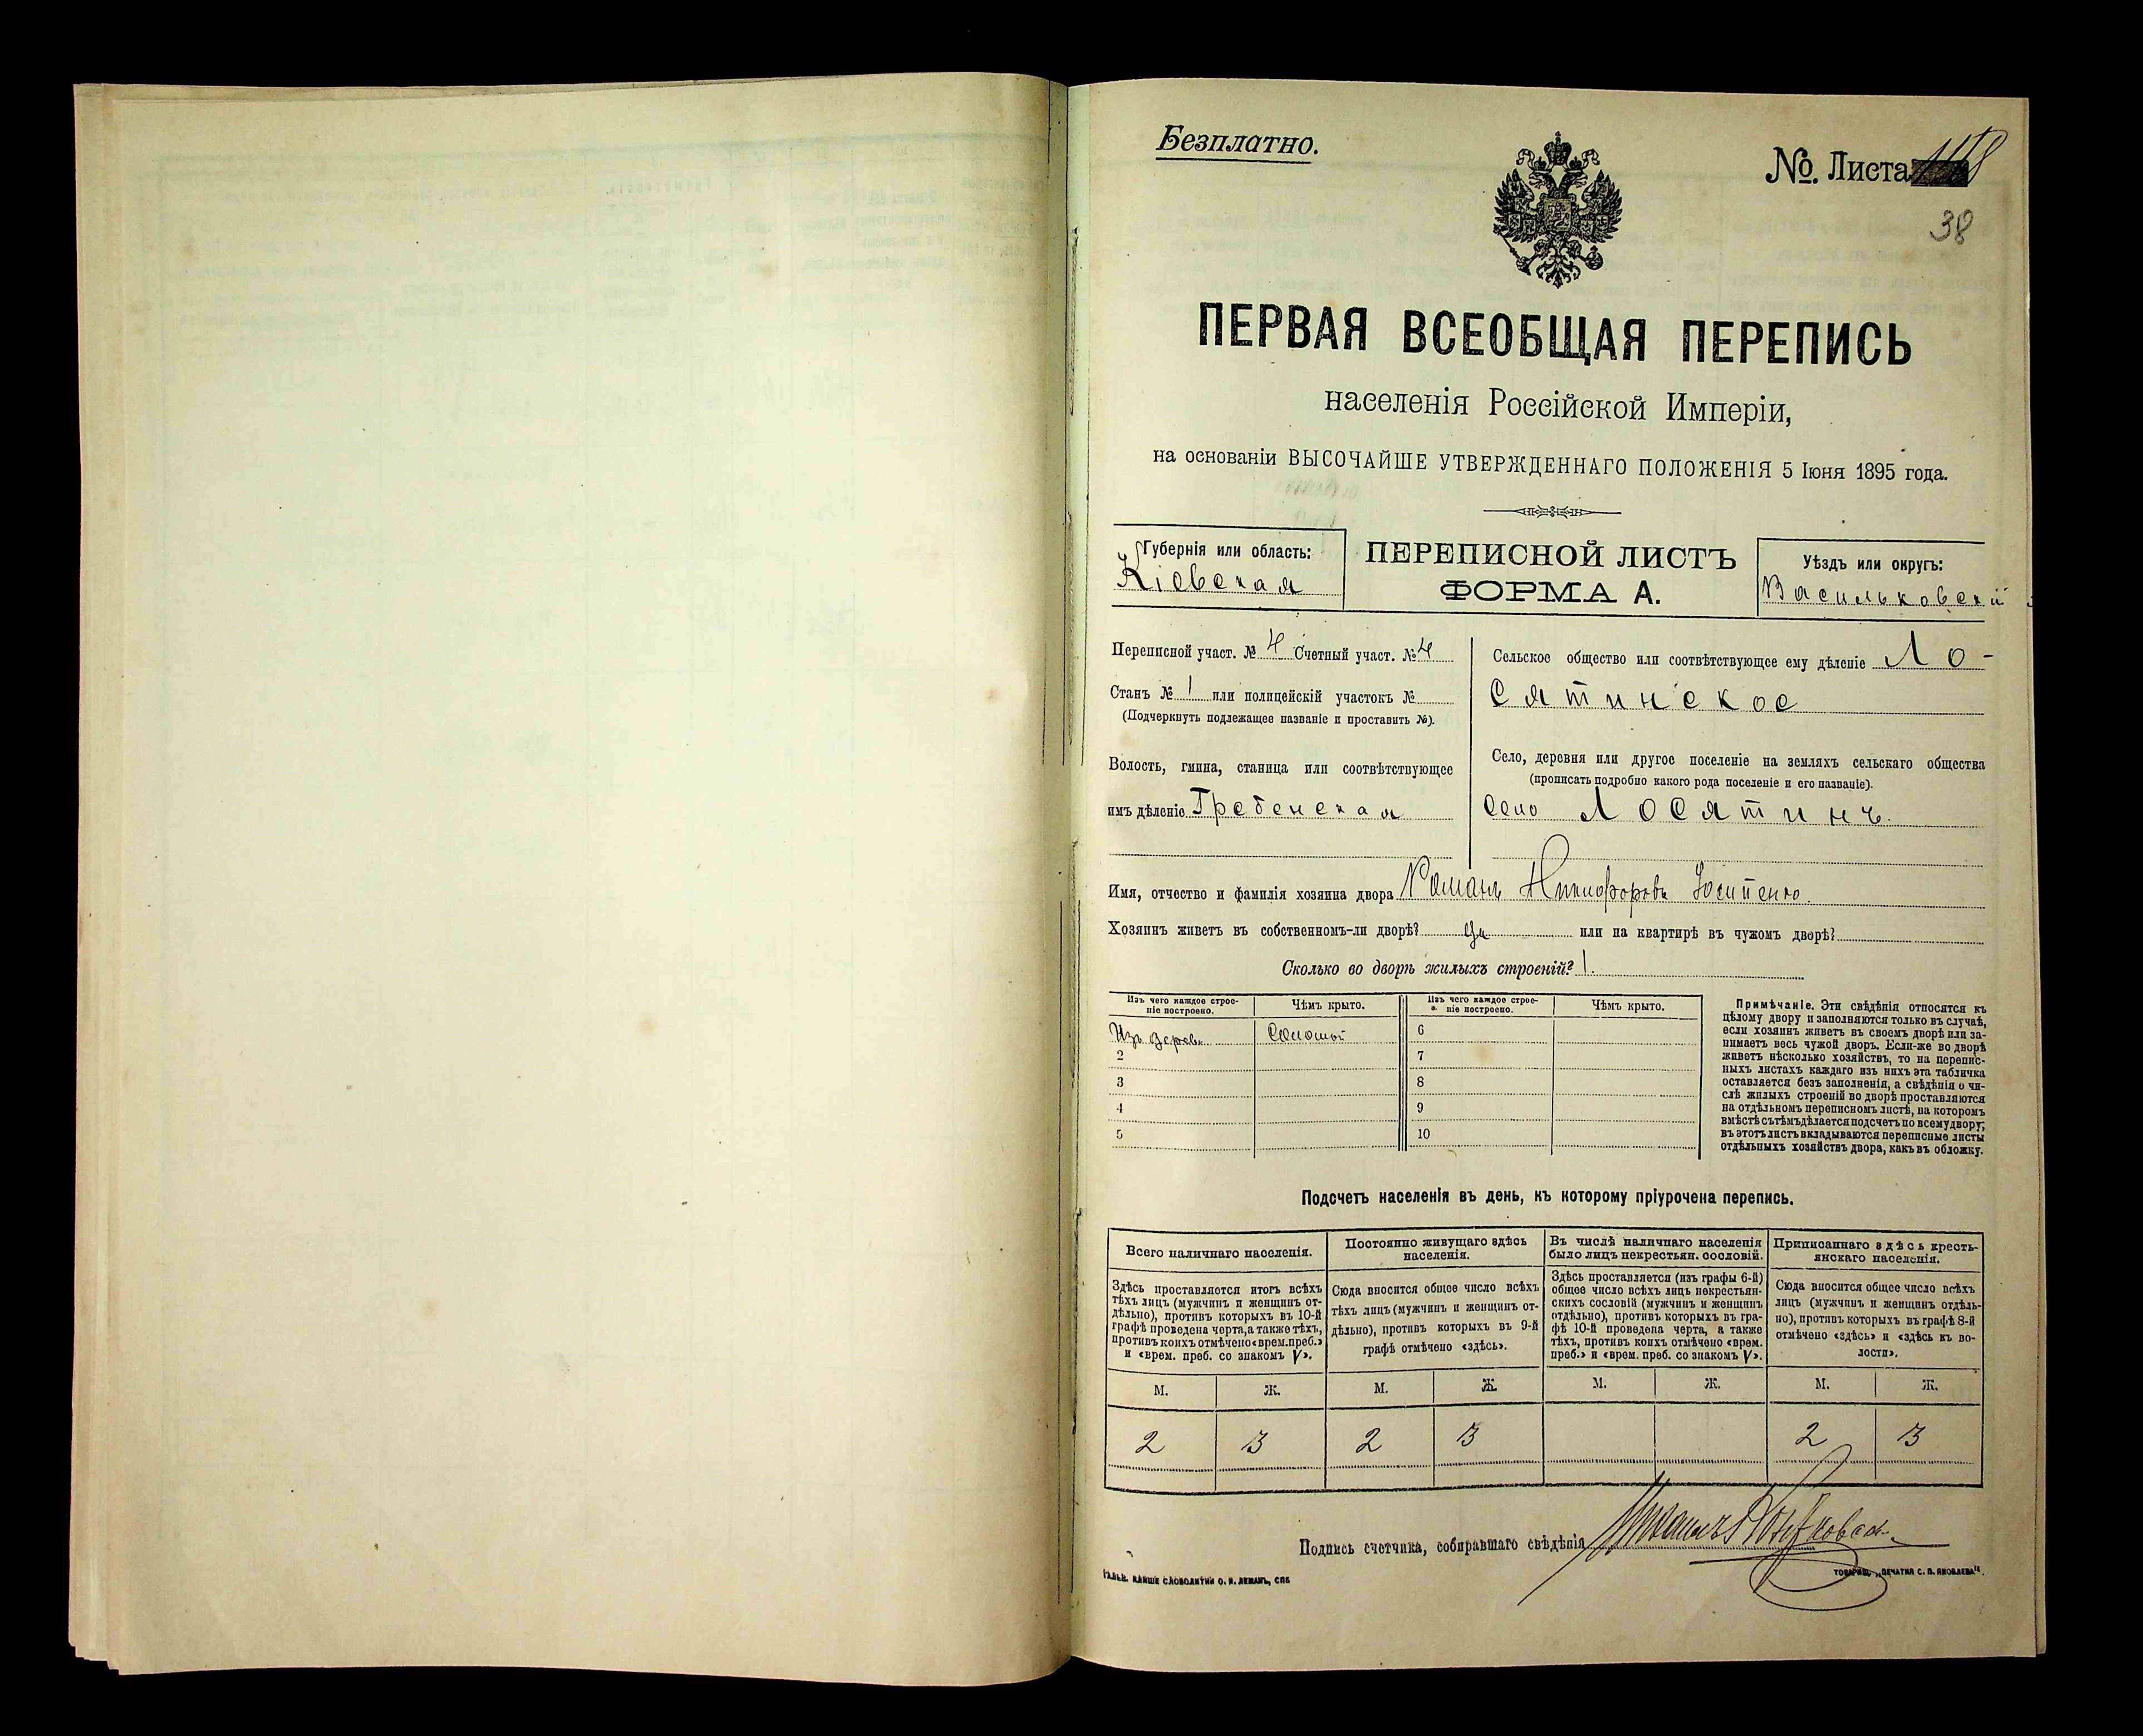 Безплатно.
№. Листа
38
ПЕРВАЯ ВСЕОБЩАЯ ПЕРЕПИСЬ
населенія Россійской Имперіи,
на основаніи ВЫСОЧАЙШЕ УТВЕРЖДЕННАГО ПОЛОЖЕНІЯ 5 Іюня 1895 года.
Губернія или область:
Кіевская
ПЕРЕПИСНОЙ ЛИСТЪ
ФОРМА А.
Уѣздъ или округъ:
Васильковскій
Переписной участ. № 4 Счетный участ. № 4
Станъ № 1 или полицейскій участокъ №
(Подчеркнуть подлежащее названіе и проставить №).
Волость, гмина, станица или соотвѣтствующее
имъ дѣленіе Гребенская
Сельское общество или соотвѣтствующее ему дѣленіе Ло-
сятинское
Село, деревня или другое поселеніе на земляхъ сельскаго общества
(прописать подробно какого рода поселеніе и его названіе).
село Лосятинъ
Имя, отчество и фамилія хозяина двора Романъ Никифоровъ
Хозяинъ живетъ въ собственномъ-ли дворѣ? да или на квартирѣ въ чужомъ дворѣ?
Сколько во дворѣ жилыхъ строеній? 1.
Изъ чего каждое строе-
ніе построено.
Чѣмъ крыто.
Изъ чего каждое строе-
ніе построено.
Чѣмъ крыто.
Изъ дерев. Соломой 6
2 7
3 8
4 9
5 10
Примѣчаніе. Эти свѣдѣнія относятся къ
цѣлому двору и заполняются только въ случаѣ,
если хозяинъ живетъ въ своемъ дворѣ или за-
нимаетъ весь чужой дворъ. Если-же во дворѣ
живетъ нѣсколько хозяйствъ, то на перепис-
ныхъ листахъ каждаго изъ нихъ эта табличка
оставляется безъ заполненія, а свѣдѣнія о чи-
слѣ жилыхъ строеній во дворѣ проставляются
на отдѣльномъ переписномъ листѣ, на которомъ
вмѣстѣ съ тѣмъ дѣлается подсчетъ по всему двору;
въ этотъ листъ вкладываются переписные листы
отдѣльныхъ хозяйствъ двора, какъ въ обложку.
Подсчетъ населенія въ день, къ которому пріурочена перепись.
Всего наличнаго населенія.
Здѣсь проставляется итогъ всѣхъ
тѣхъ лицъ (мужчинъ и женщинъ от-
дѣльно), противъ которыхъ въ 10-й
графѣ проведена черта, а также тѣхъ,
противъ коихъ отмѣчено «врем. преб.»
и «врем. преб. со знакомъ V».
Постоянно живущаго здѣсь
населенія.
Сюда вносится общее число всѣхъ
тѣхъ лицъ (мужчинъ и женщинъ от-
дѣльно), противъ которыхъ въ 9-й
графѣ отмѣчено «здѣсь».
Въ числѣ наличнаго населенія
было лицъ некрестьян. сословій.
Здѣсь проставляется (изъ графы 6-й)
общее число всѣхъ лицъ некрестьян-
скихъ сословій (мужчинъ и женщинъ
отдѣльно), противъ которыхъ въ гра-
фѣ 10-й проведена черта, а также
тѣхъ, противъ коихъ отмѣчено «врем.
преб.» и «врем. преб. со знакомъ V».
Приписаннаго здѣсь кресть-
янскаго населенія.
Сюда вносится общее число всѣхъ
лицъ (мужчинъ и женщинъ отдѣль-
но), противъ которыхъ въ графѣ 8-й
отмѣчено «здѣсь» и «здѣсь къ во-
лости».
М. Ж. М. Ж. М. Ж. М. Ж.
2 3 2 3 2 3
Подпись счетчика, собиравшаго свѣдѣнія
СЛОВОЛИТНИ О. И. ЛЕМАНЪ, СПБ
ТОВАРИЩ. „ПЕЧАТНЯ С. П. ЯКОВЛЕВА“.